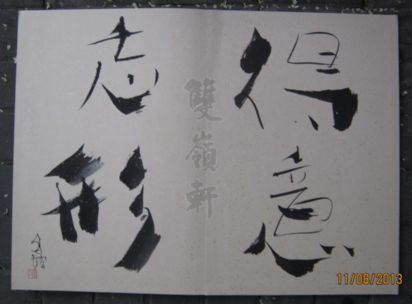 得意
忘形
雙嶺軒
11/08/2013